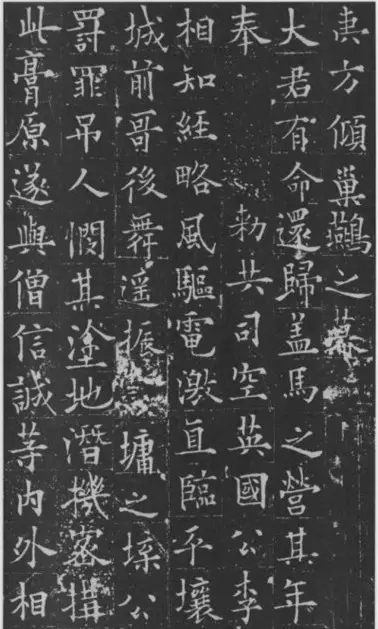 夷方傾巢鷰之幕
大君有命還歸盖馬之營其年
奉 勑共司空英國公李
相知經略風驅電激直臨平壤
城前哥後舞遥振墉之堞公
罰罪吊人憫其塗地潛機密搆
此膏原遂與僧信誠等内外相